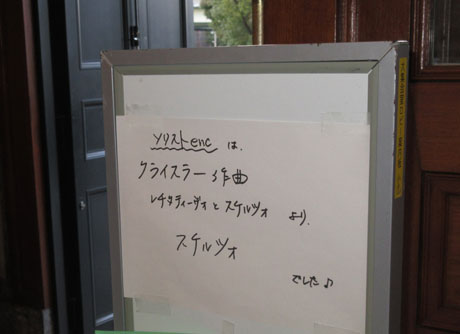 ソリストenc は、
クライスラー 作曲
レチタティーヴォ と スケルツォ より、
スケルツォ
でした♪